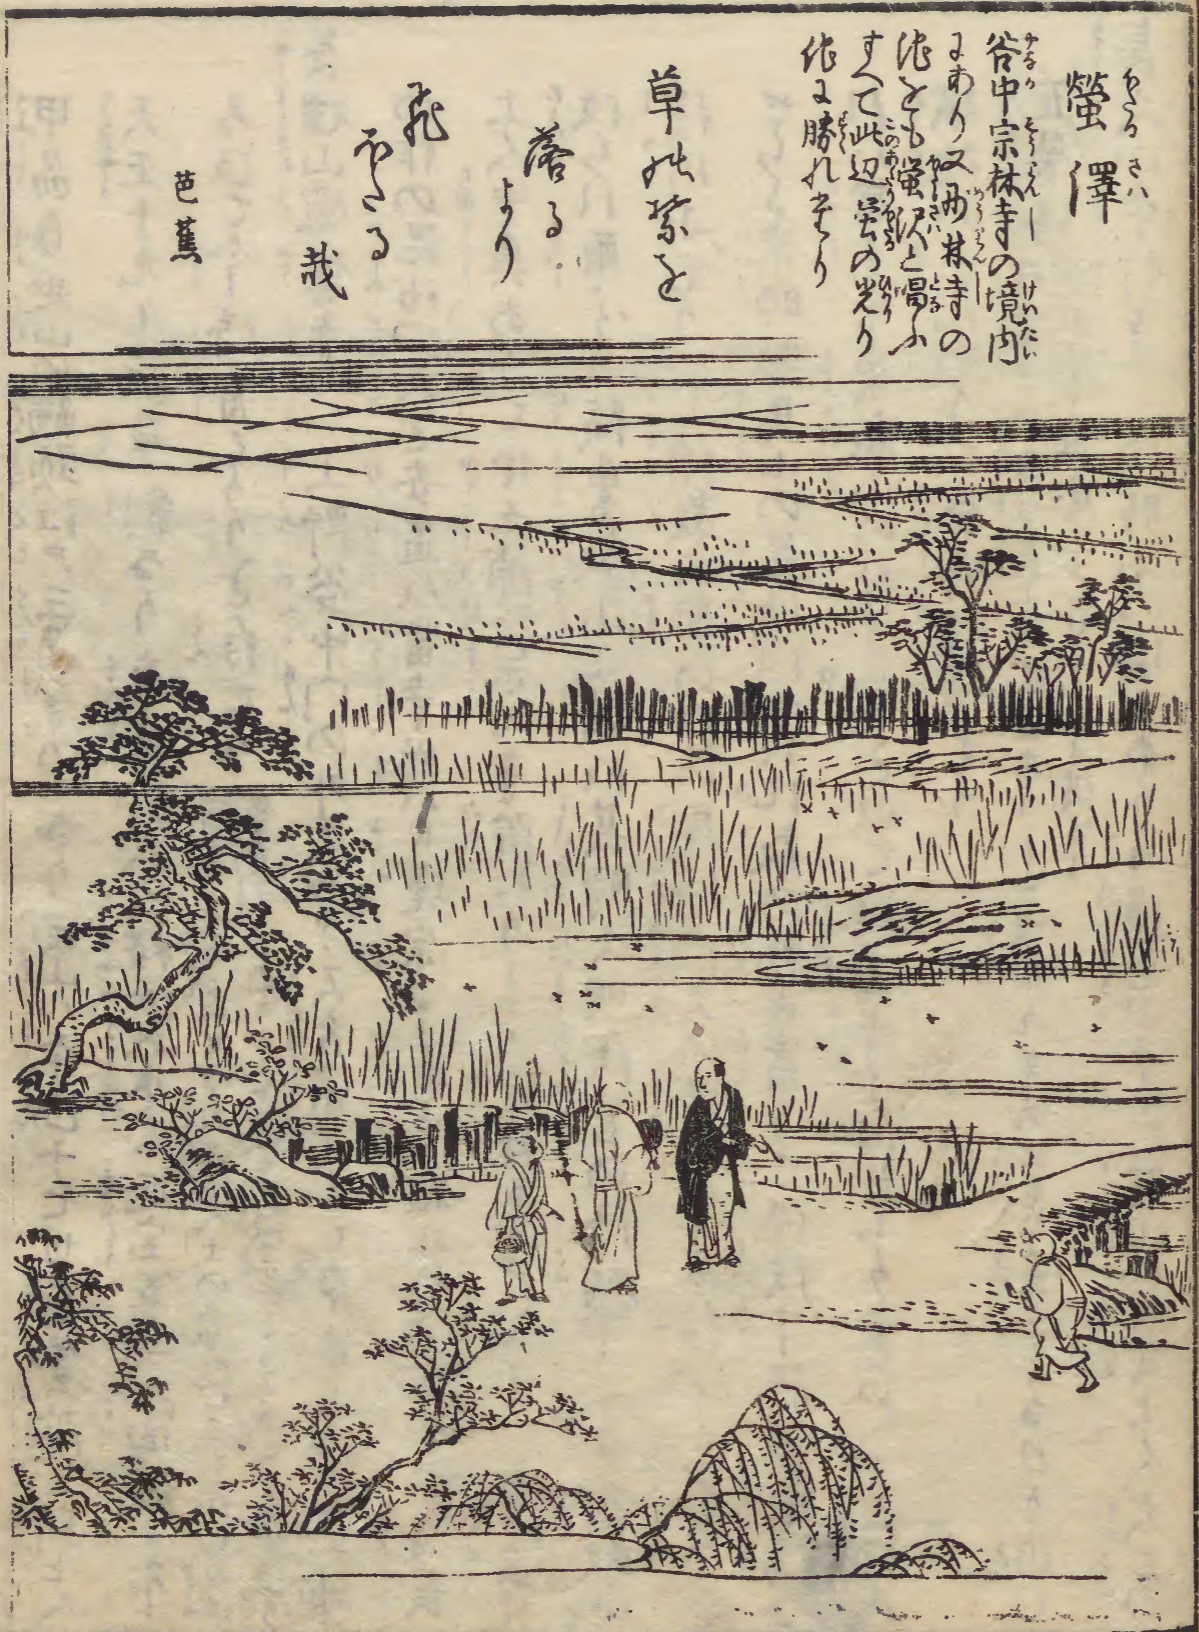 ほたる さハ
螢澤
谷中宗林寺の境内
にあり又妙林寺の
池をも螢沢と唱ふ
すへて此辺螢の光り
他に勝れたり
草の葉を
落る
より
飛
ほたる
哉
芭蕉